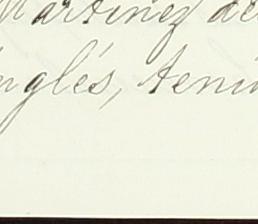 Martinez de
nglés, teni